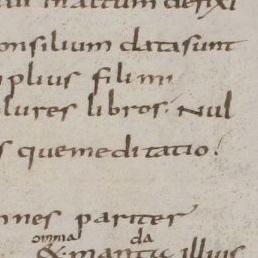 in actum defixi
onsilium datasunt
plius fili mi
lures libros. Nul
s quemeditatio.
nnes pariter
omnia da
&. mantic illius